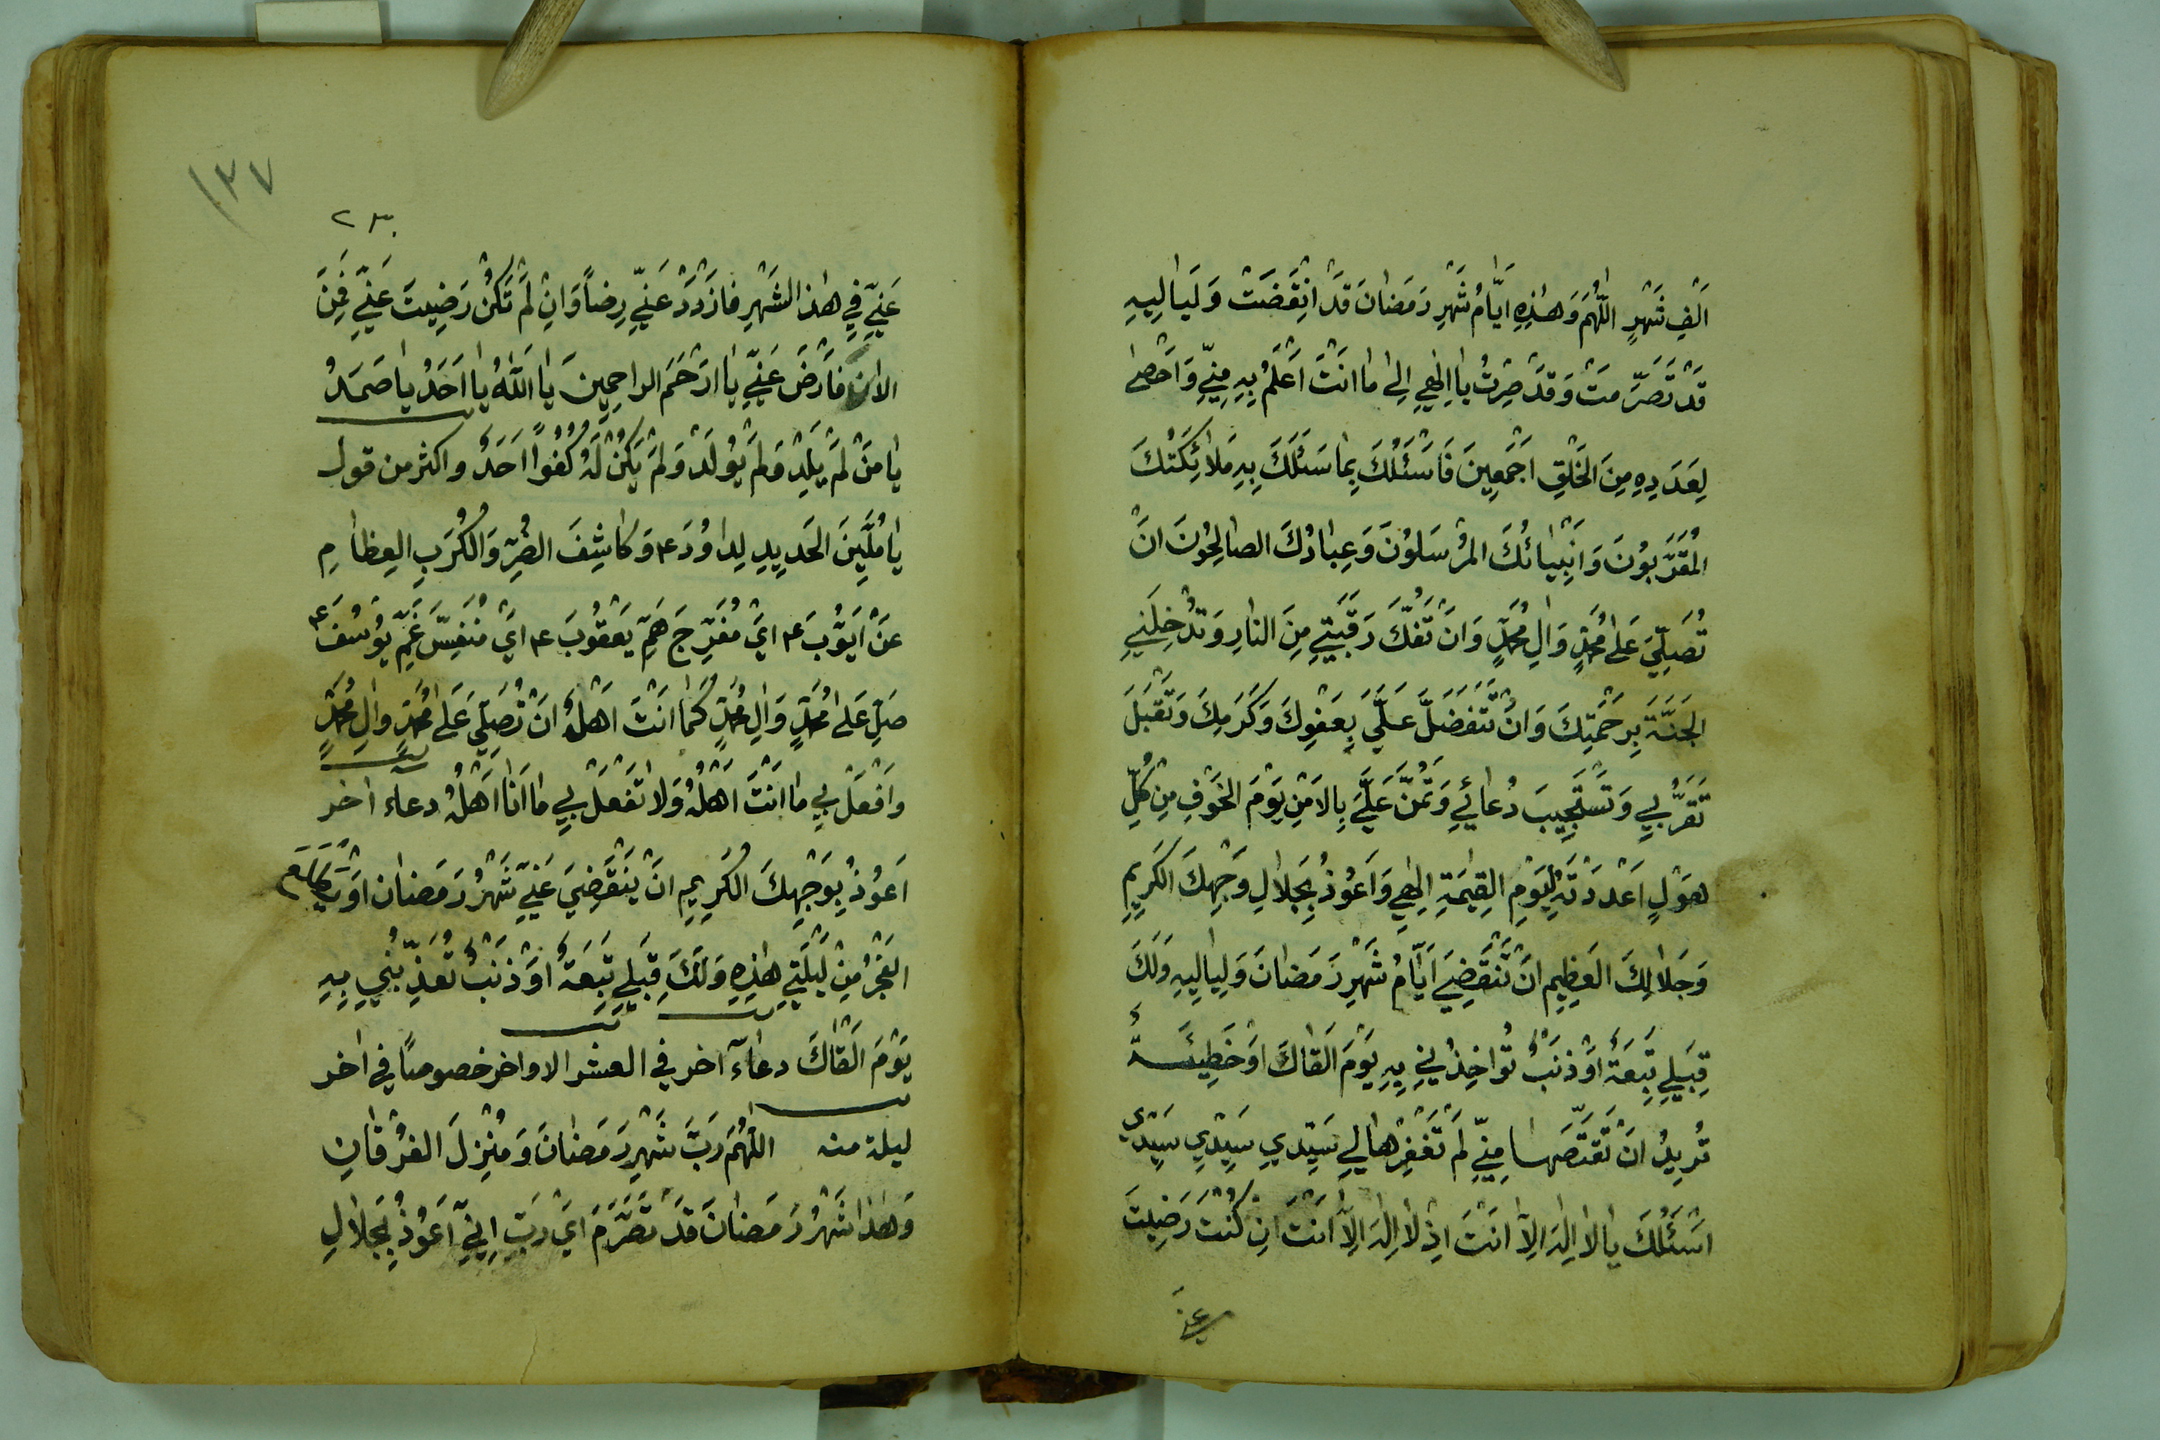 اَلْفِ شَهْرٍ اَللّٰهُمَّ وَهٰذِهِ اَيَّامُ شَهْرِ رَمَضٰانَ قَدْ انْقَضَتْ وَلَيٰالِيهِ
قَدْ تَصَرَّمَتْ وَقَدْ صِرْتُ يٰا اِلٰهِي اِلىٰ مٰا اَنْتَ اَعْلَمُ بِهِ مِنِّي وَاَحْصىٰ
لِعَدَدِهِ مِنَ الْخَلْقِ اَجْمَعِينَ فَاَسْئَلُكَ بِمٰا سَئَلَكَ بِهِ مَلاٰئِكَتُكَ
الْمُقَرَّبُونَ وَاَنْبِيٰائُكَ الْمُرْسَلُونَ وَعِبٰادُكَ الصّٰالِحُونَ اَنْ
تُصَلِّيَ عَلىٰ مُحَمَّدٍ وَاٰلِ مُحَمَّدٍ وَاَنْ تَفُكَّ رَقَبَتِي مِنَ النّٰارِ وَتُدْخِلَنِي
الْجَنَّةَ بِرَحْمَتِكَ وَاَنْ تَتَفَضَّلَ عَلَيَّ بِعَفْوِكَ وَكَرَمِكَ وَتَقَبَّلَ
تَقَرُّبِي وَتَسْتَجِيبَ دُعٰائِي وَتَمُنَّ عَلَيَّ بِالْاَمْنِ يَوْمَ الْخَوْفِ مِنْ كُلِّ
هَوْلٍ اَعْدَدْتَهُ لِيَوْمِ الْقِيٰمَةِ اِلٰهِي وَاَعُوذُ بِجَلاٰلِ وَجْهِكَ الْكَرِيمِ
وَجَلاٰلِكَ الْعَظِيمِ اَنْ تَنْقَضِيَ اَيّٰامُ شَهْرِ رَمَضٰانَ وَلَيٰالِيهِ وَلَكَ
قِبَلِي تَبِعَةٌ اَوْ ذَنْبٌ تُوٰاخِذُنِي بِهِ يَوْمَ اَلْقٰاكَ اَوْ خَطِيئَةٌ
تُرِيدُ اَنْ تَقْتَصَّهٰا مِنِّي لَمْ تَغْفِرْهٰا لِي سَيِّدِي سَيِّدِي سَيِّدِي
اَسْئَلُكَ يٰا لاٰ اِلٰهَ اِلاّٰ اَنْتَ اِذْ لاٰ اِلٰهَ اِلاّٰ اَنْتَ اِنْ كُنْتَ رَضِيتَ
عنّي
١٣٧
٢٣٠
عَنِّي فِي هٰذَا الشَّهْرِ فَازْدَدْ عَنِّي رِضاً وَاِنْ لَمْ تَكُنْ رَضِيتَ عَنِّي فَمِنَ
الْاٰنَ فَارْضَ عَنِّي يٰا اَرْحَمَ الرّٰاحِمِينَ يٰا اَللّٰهُ يٰا اَحَدُ يٰا صَمَدُ
يٰا مَنْ لَمْ يَلِدْ وَلَمْ يُولَدْ وَلَمْ يَكُنْ لَهُ كُفُواً اَحَدٌ واكثر من قول
يٰا مُلَيِّنَ الْحَدِيدِ لِدٰاوُدَ ع وَكٰاشِفَ الضُّرِّ وَالْكُرَبِ الْعِظٰامِ
عَنْ اَيُّوبَ ع اَيْ مُفَرِّجَ هَمِّ يَعْقُوبَ ع اَيْ مُنَفِّسَ غَمِّ يُوسُفَ ع
صَلِّ عَلىٰ مُحَمَّدٍ وَاٰلِ مُحَمَّدٍ كَمٰا اَنْتَ اَهْلُهُ اَنْ تُصَلِّيَ عَلىٰ مُحَمَّدٍ وَاٰلِ مُحَمَّدٍ
وَافْعَلْ بِي مٰا اَنْتَ اَهْلُهُ وَلاٰ تَفْعَلْ بِي مٰا اَنَا اَهْلُهُ دعاء اخر
اَعُوذُ بِوَجْهِكَ الْكَرِيمِ اَنْ يَنْقَضِيَ عَنِّي شَهْرُ رَمَضٰانَ اَوْ يَطْلُعَ
الْفَجْرُ مِنْ لَيْلَتِي هٰذِهِ وَلَكَ قِبَلِي تَبِعَةٌ اَوْ ذَنْبٌ تُعَذِّبُنِي بِهِ
يَوْمَ اَلْقٰاكَ دعاء اخر في العشر الاواخر خصوصاً في اخر
ليلة منه اَللّٰهُمَّ رَبَّ شَهْرِ رَمَضٰانَ وَمُنْزِلَ الْفُرْقٰانِ
وَهٰذٰا شَهْرُ رَمَضٰانَ قَدْ تَصَرَّمَ اَيْ رَبِّ اِنِّي اَعُوذُ بِجَلاٰلِ